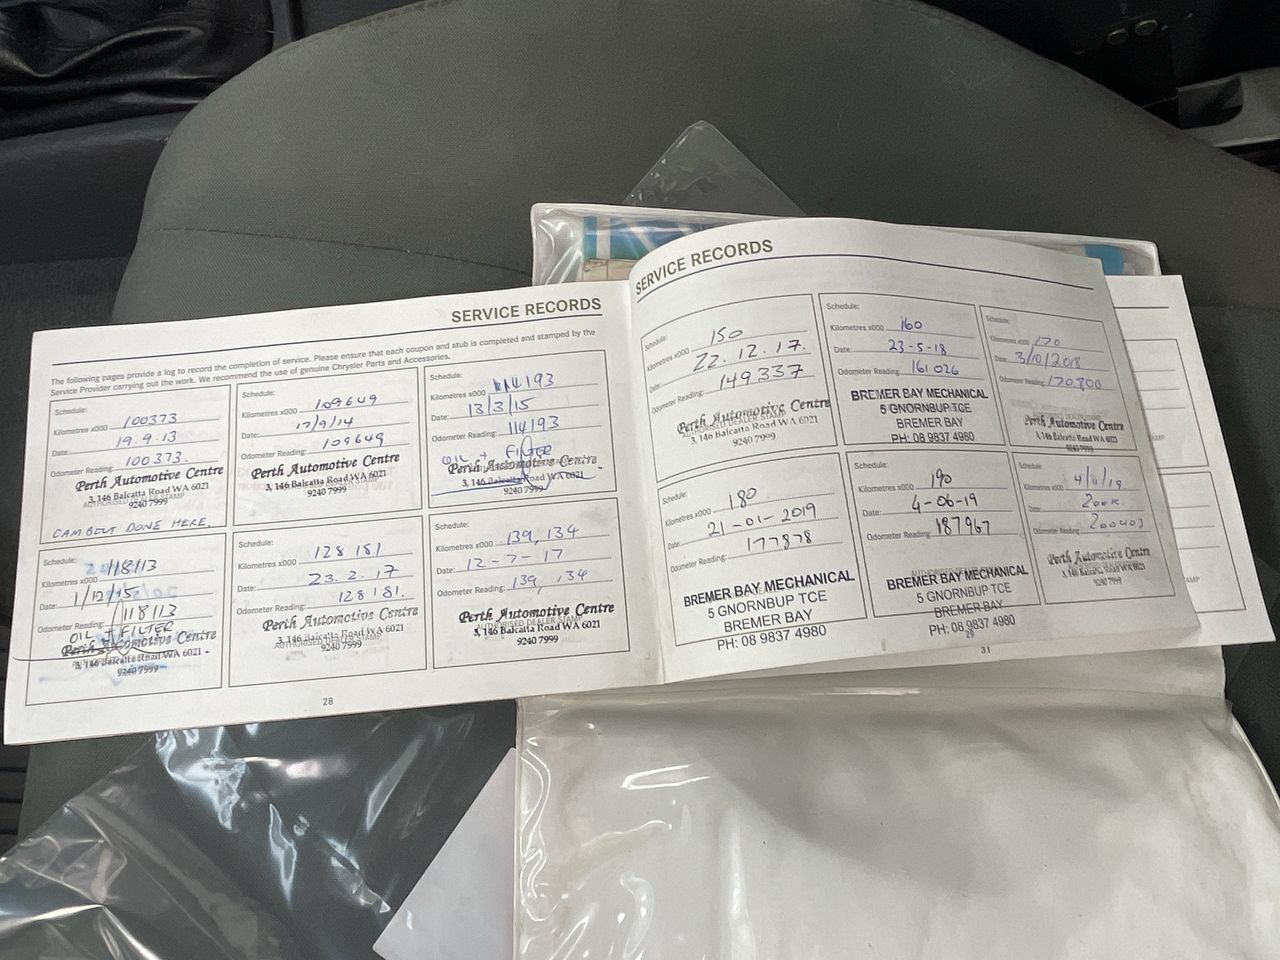 SERVICE RECORDS
The following pages provide a log to record the completion of service. Please ensure that each coupon and stub is completed and stamped by the
Service Provider carrying out the work. We recommend the use of genuine Chrysler Parts and Accessories.
Schedule:
Kilometres x000 100373
Date: 19.9.13
Odometer Reading: 100373.
Perth Automotive Centre
3, 146 Balcatta Road WA 6021
AUTHORISED DEALER STAMP
9240 7999
CAMBELT DONE HERE.
Schedule:
Kilometres x000 109649
Date: 17/9/14
Odometer Reading: 109649
Perth Automotive Centre
3, 146 Balcatta Road WA 6021
9240 7999
Schedule:
Kilometres x000 114193
Date: 13/3/15
Odometer Reading: 114193
OIL + FILTER
Perth Automotive Centre
3, 146 Balcatta Road WA 6021
9240 7999
Schedule:
Kilometres x000 118113
Date: 1/12/15
Odometer Reading: 118113
OIL + FILTER
Perth Automotive Centre
3, 146 Balcatta Road WA 6021
9240 7999
Schedule:
Kilometres x000 128181
Date: 23.2.17
Odometer Reading: 128181.
Perth Automotive Centre
3, 146 Balcatta Road WA 6021
AUTHORISED DEALER STAMP
9240 7999
Schedule:
Kilometres x000 139,134
Date: 12-7-17
Odometer Reading: 139,134
Perth Automotive Centre
AUTHORISED DEALER STAMP
3, 146 Balcatta Road WA 6021
9240 7999
28
SERVICE RECORDS
Schedule:
Kilometres x000 150
Date: 22.12.17.
Odometer Reading: 149337
Perth Automotive Centre
AUTHORISED DEALER STAMP
3, 146 Balcatta Road WA 6021
9240 7999
Schedule:
Kilometres x000 160
Date: 23-5-18
Odometer Reading: 161026
BREMER BAY MECHANICAL
5 GNORNBUP TCE
BREMER BAY
PH: 08 9837 4980
Schedule:
Kilometres x000 170
Date: 3/10/2018
Odometer Reading: 170,800
Perth Automotive Centre
3, 146 Balcatta Road WA 6021
9240 7999
Schedule:
Kilometres x000 180
Date: 21-01-2019
Odometer Reading: 177878
BREMER BAY MECHANICAL
5 GNORNBUP TCE
BREMER BAY
PH: 08 9837 4980
Schedule:
Kilometres x000 190
Date: 4-06-19
Odometer Reading: 187967
BREMER BAY MECHANICAL
5 GNORNBUP TCE
BREMER BAY
PH: 08 9837 4980
29
Schedule:
Kilometres x000 4/11/19
Date: 200K
Odometer Reading:
Perth Automotive Centre
3, 146 Balcatta Road WA 6021
9240 7999
31